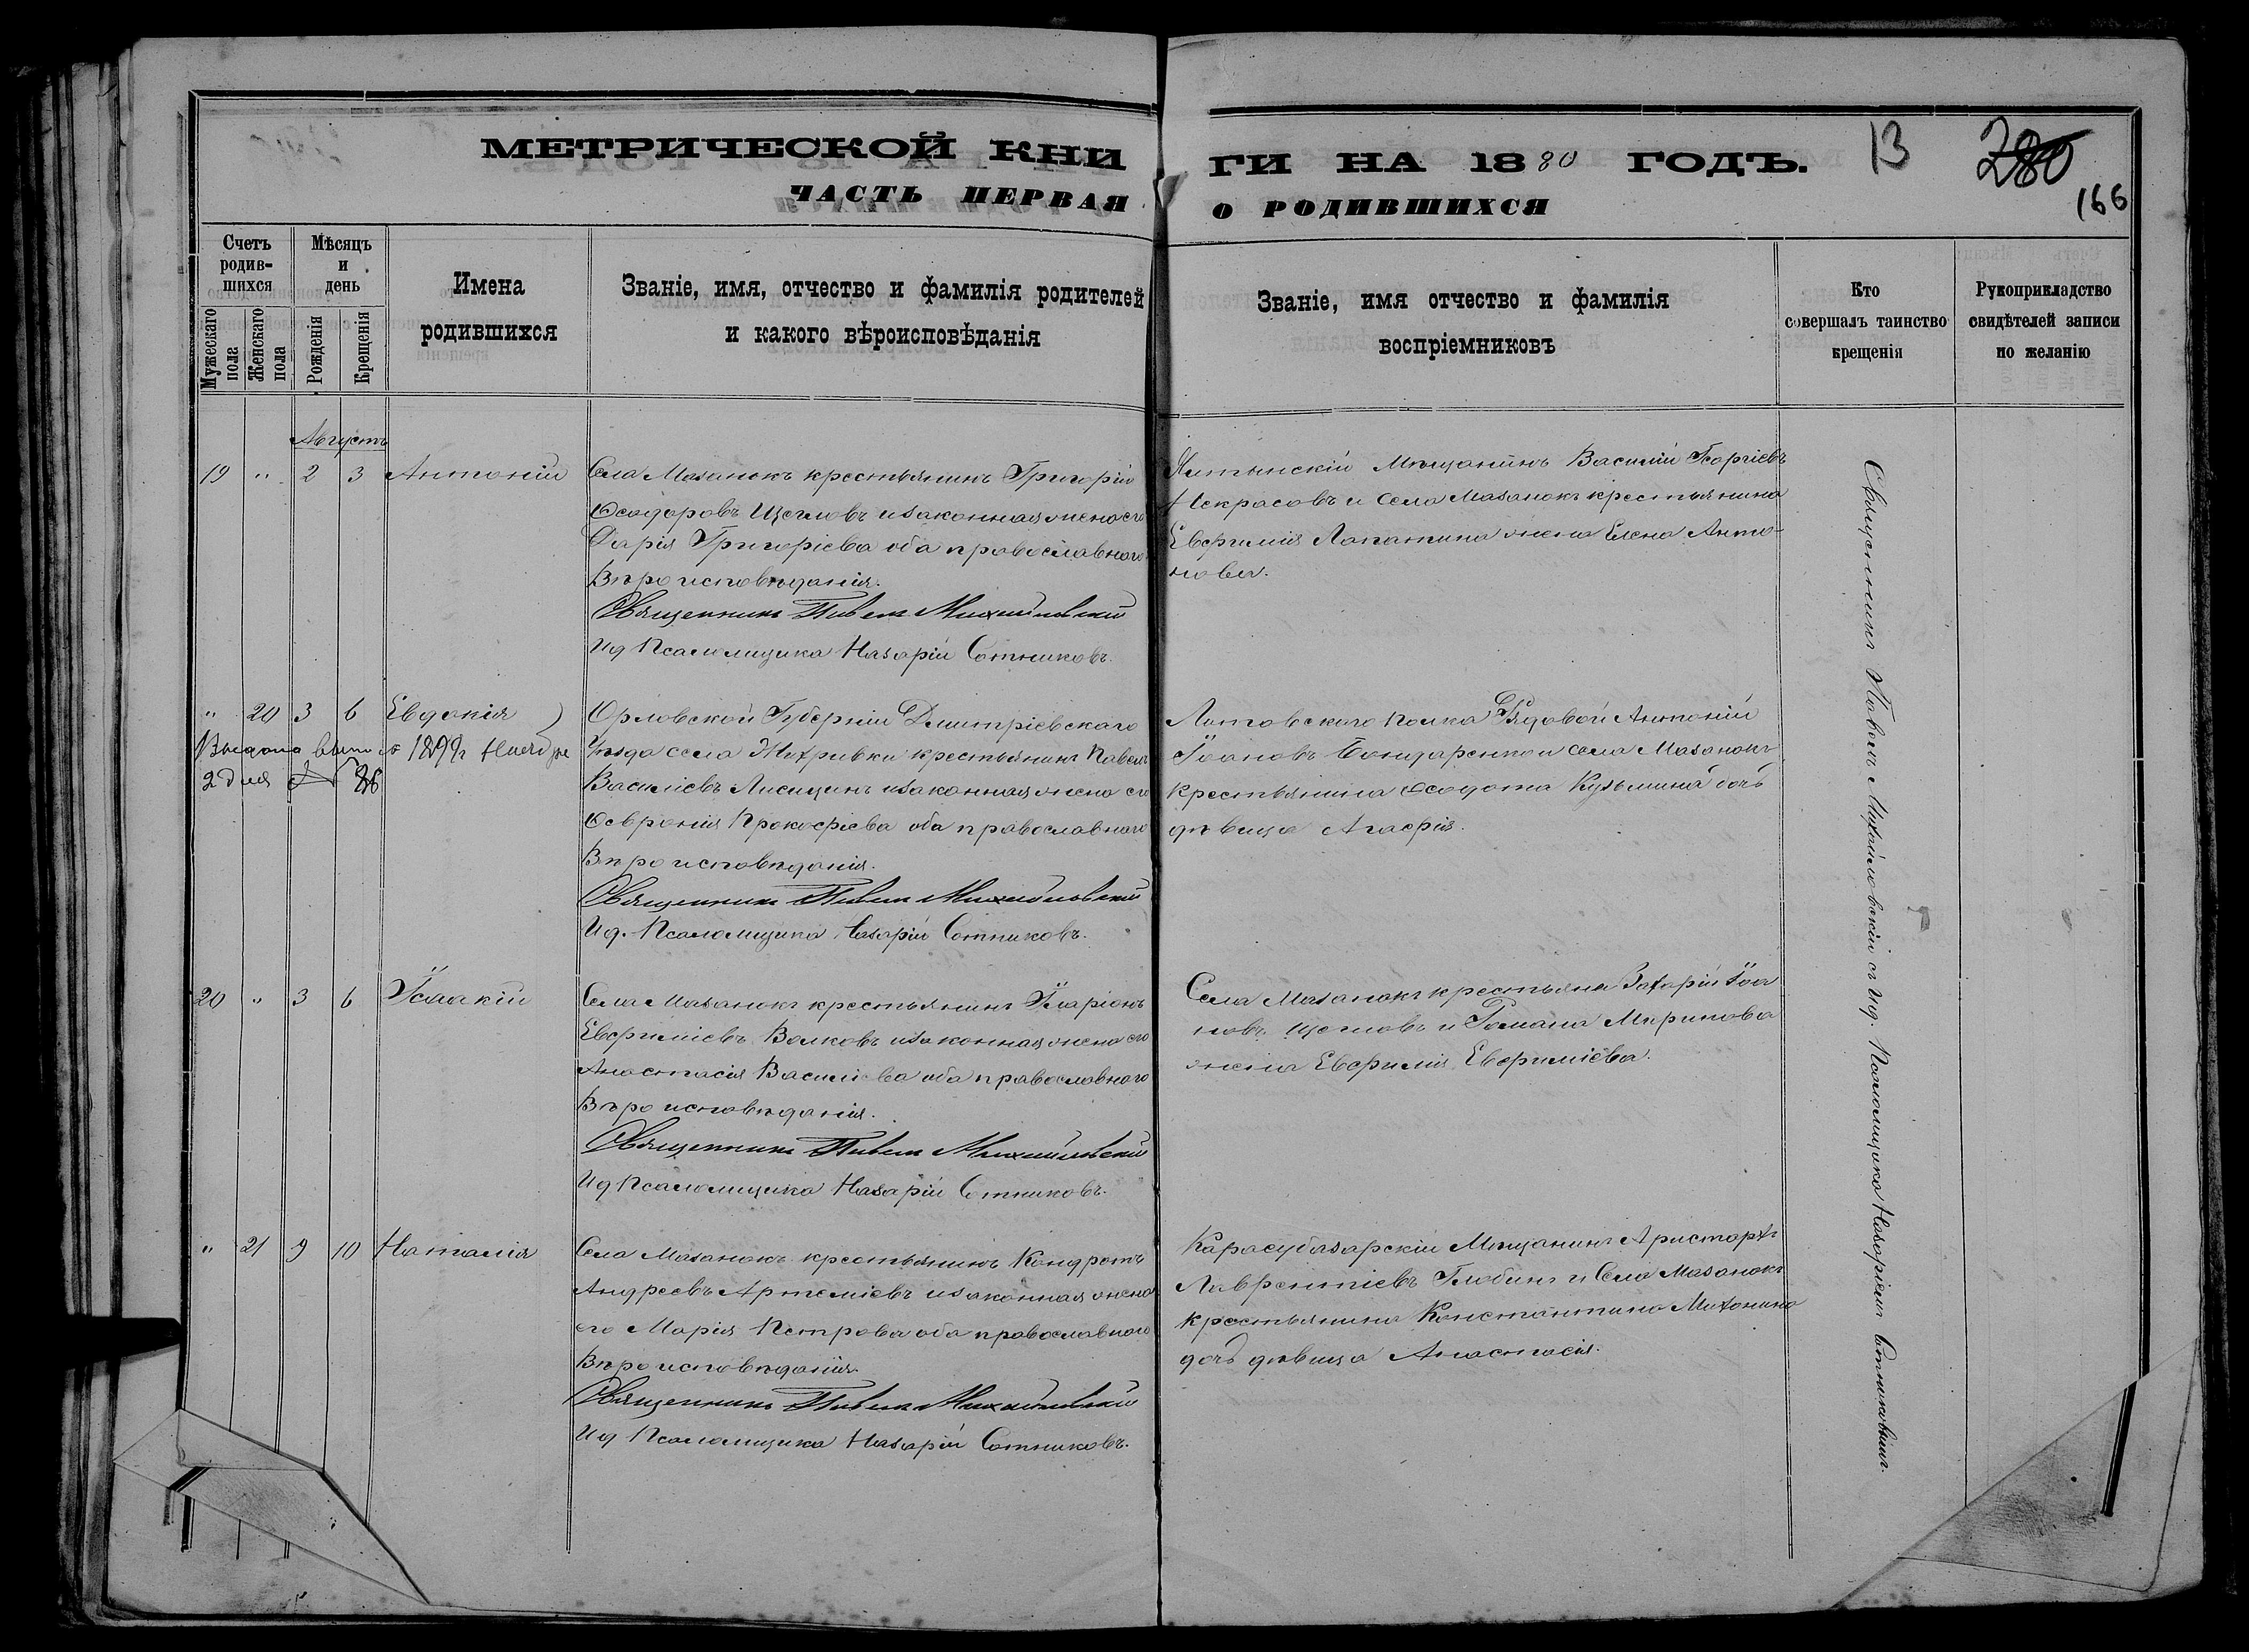 МЕТРИЧЕСКОЙ КНИ
ГИ НА 1880 ГОДЪ.
13
280
166
ЧАСТЬ ПЕРВАЯ
О РОДИВШИХСЯ
Счетъ родив-шихся
Мужескаго пола
Женскаго пола
Мѣсяцъ и день
Рожденія
Крещенія
Имена родившихся
Званіе, имя, отчество и фамилія родителей
и какого вѣроисповѣданія
Званіе, имя отчество и фамилія
воспріемниковъ
Кто
совершалъ таинство
крещенія
Рукоприкладство
свидѣтелей записи
по желанію
Августъ
19 " 2 3 Антоній
Села Мазанокъ крестьянинъ Григорій
Ѳеодоровъ Щегловъ изаконная жена его
Дарія Григоріева оба православнаго
Вѣроисповѣданія.
Священникъ Павелъ Михайловскій
Ид Псаломщика Назарій Сотниковъ.
Ялтынскій Мѣщанинъ Василій Георгіевъ
Некрасовъ и Села Мазанокъ крестьянина
Евфимія Лапатина жена Елена Анто-
нова.
" 20 3 6 Евдокія
Выдана вып 1899г Ноября
2 дня № 28
Орловской Губерніи Дмитріевскаго
Уѣзда села крестьянинъ Павелъ
Василіевъ Лисицинъ изаконная жена его
Ѳевронія Прокофіева оба православнаго
Вѣроисповѣданія.
Священникъ Павелъ Михайловскій
Ид. Псаломщика Назарій Сотниковъ.
Литовскаго полка Рядовой Антоній
Іоановъ Бондаренко и села Мазанокъ
крестьянина Ѳеодота Кузьмина дочь
дѣвица Агафія.
20 " 3 6 Ісаакій
Села Мазанокъ крестьянинъ Иларіонъ
Евфиміевъ Волковъ изаконная жена его
Анастасія Василіева оба православнаго
Вѣроисповѣданія.
Священникъ Павелъ Михайловскій
Ид Псаломщика Назарій Сотниковъ.
Села Мазанокъ крестьяне Захарій Іоа
новъ Щегловъ и Романа Миринова
жена Евфимія Евфиміева.
" 21 9 10 Наталія
Села Мазанокъ крестьянинъ Кондратъ
Андреевъ Артеміевъ изаконная жена
его Марія Петрова оба православнаго
Вѣроисповѣданія.
Священникъ Павелъ Михайловскій
Ид Псаломщика Назарій Сотниковъ.
Карасубазарскій Мѣщанинъ Аристархъ
Лаврентіевъ Глобинъ и Села Мазанокъ
крестьянина Константина Михонина
дочь дѣвица Анастасія.
Священникъ Павелъ Михайловскій съ ид. Псаломщика Назаріемъ Сотниковымъ.